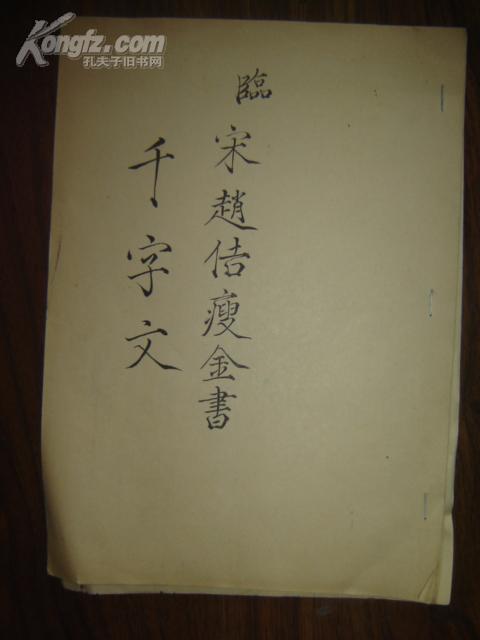 Kongfz.com
孔夫子旧书网
臨
宋趙佶瘦金書
千字文